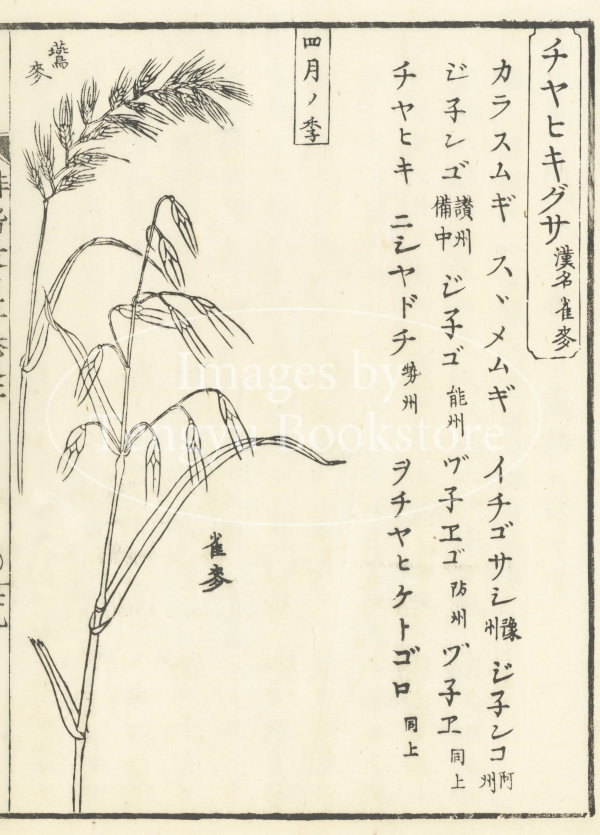 チヤヒキグサ 漢名 雀麥
カラスムギ スヾメムギ イチゴサシ 豫州 ジ子ンコ 阿州
ジ子ンゴ 讃州 備中 ジ子ゴ 能州 ヅ子ヱゴ 防州 ヅ子ヱ 同上
チヤヒキ ニシヤドチ 勢州 ヲチヤヒケトゴロ 同上
四月ノ季
雀麥
麥
Images by
Tengyu Bookstore